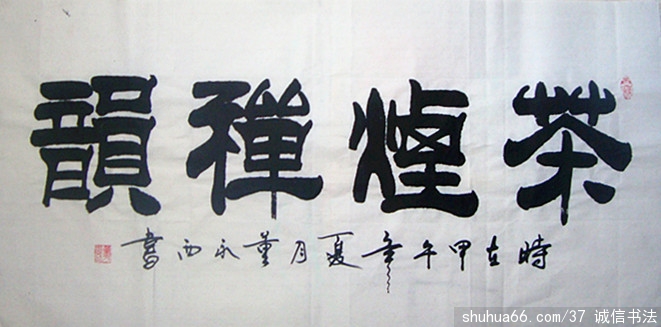 茶煙禅韻
時在甲午年夏月董永西書
shuhua66.com/37 诚信书法